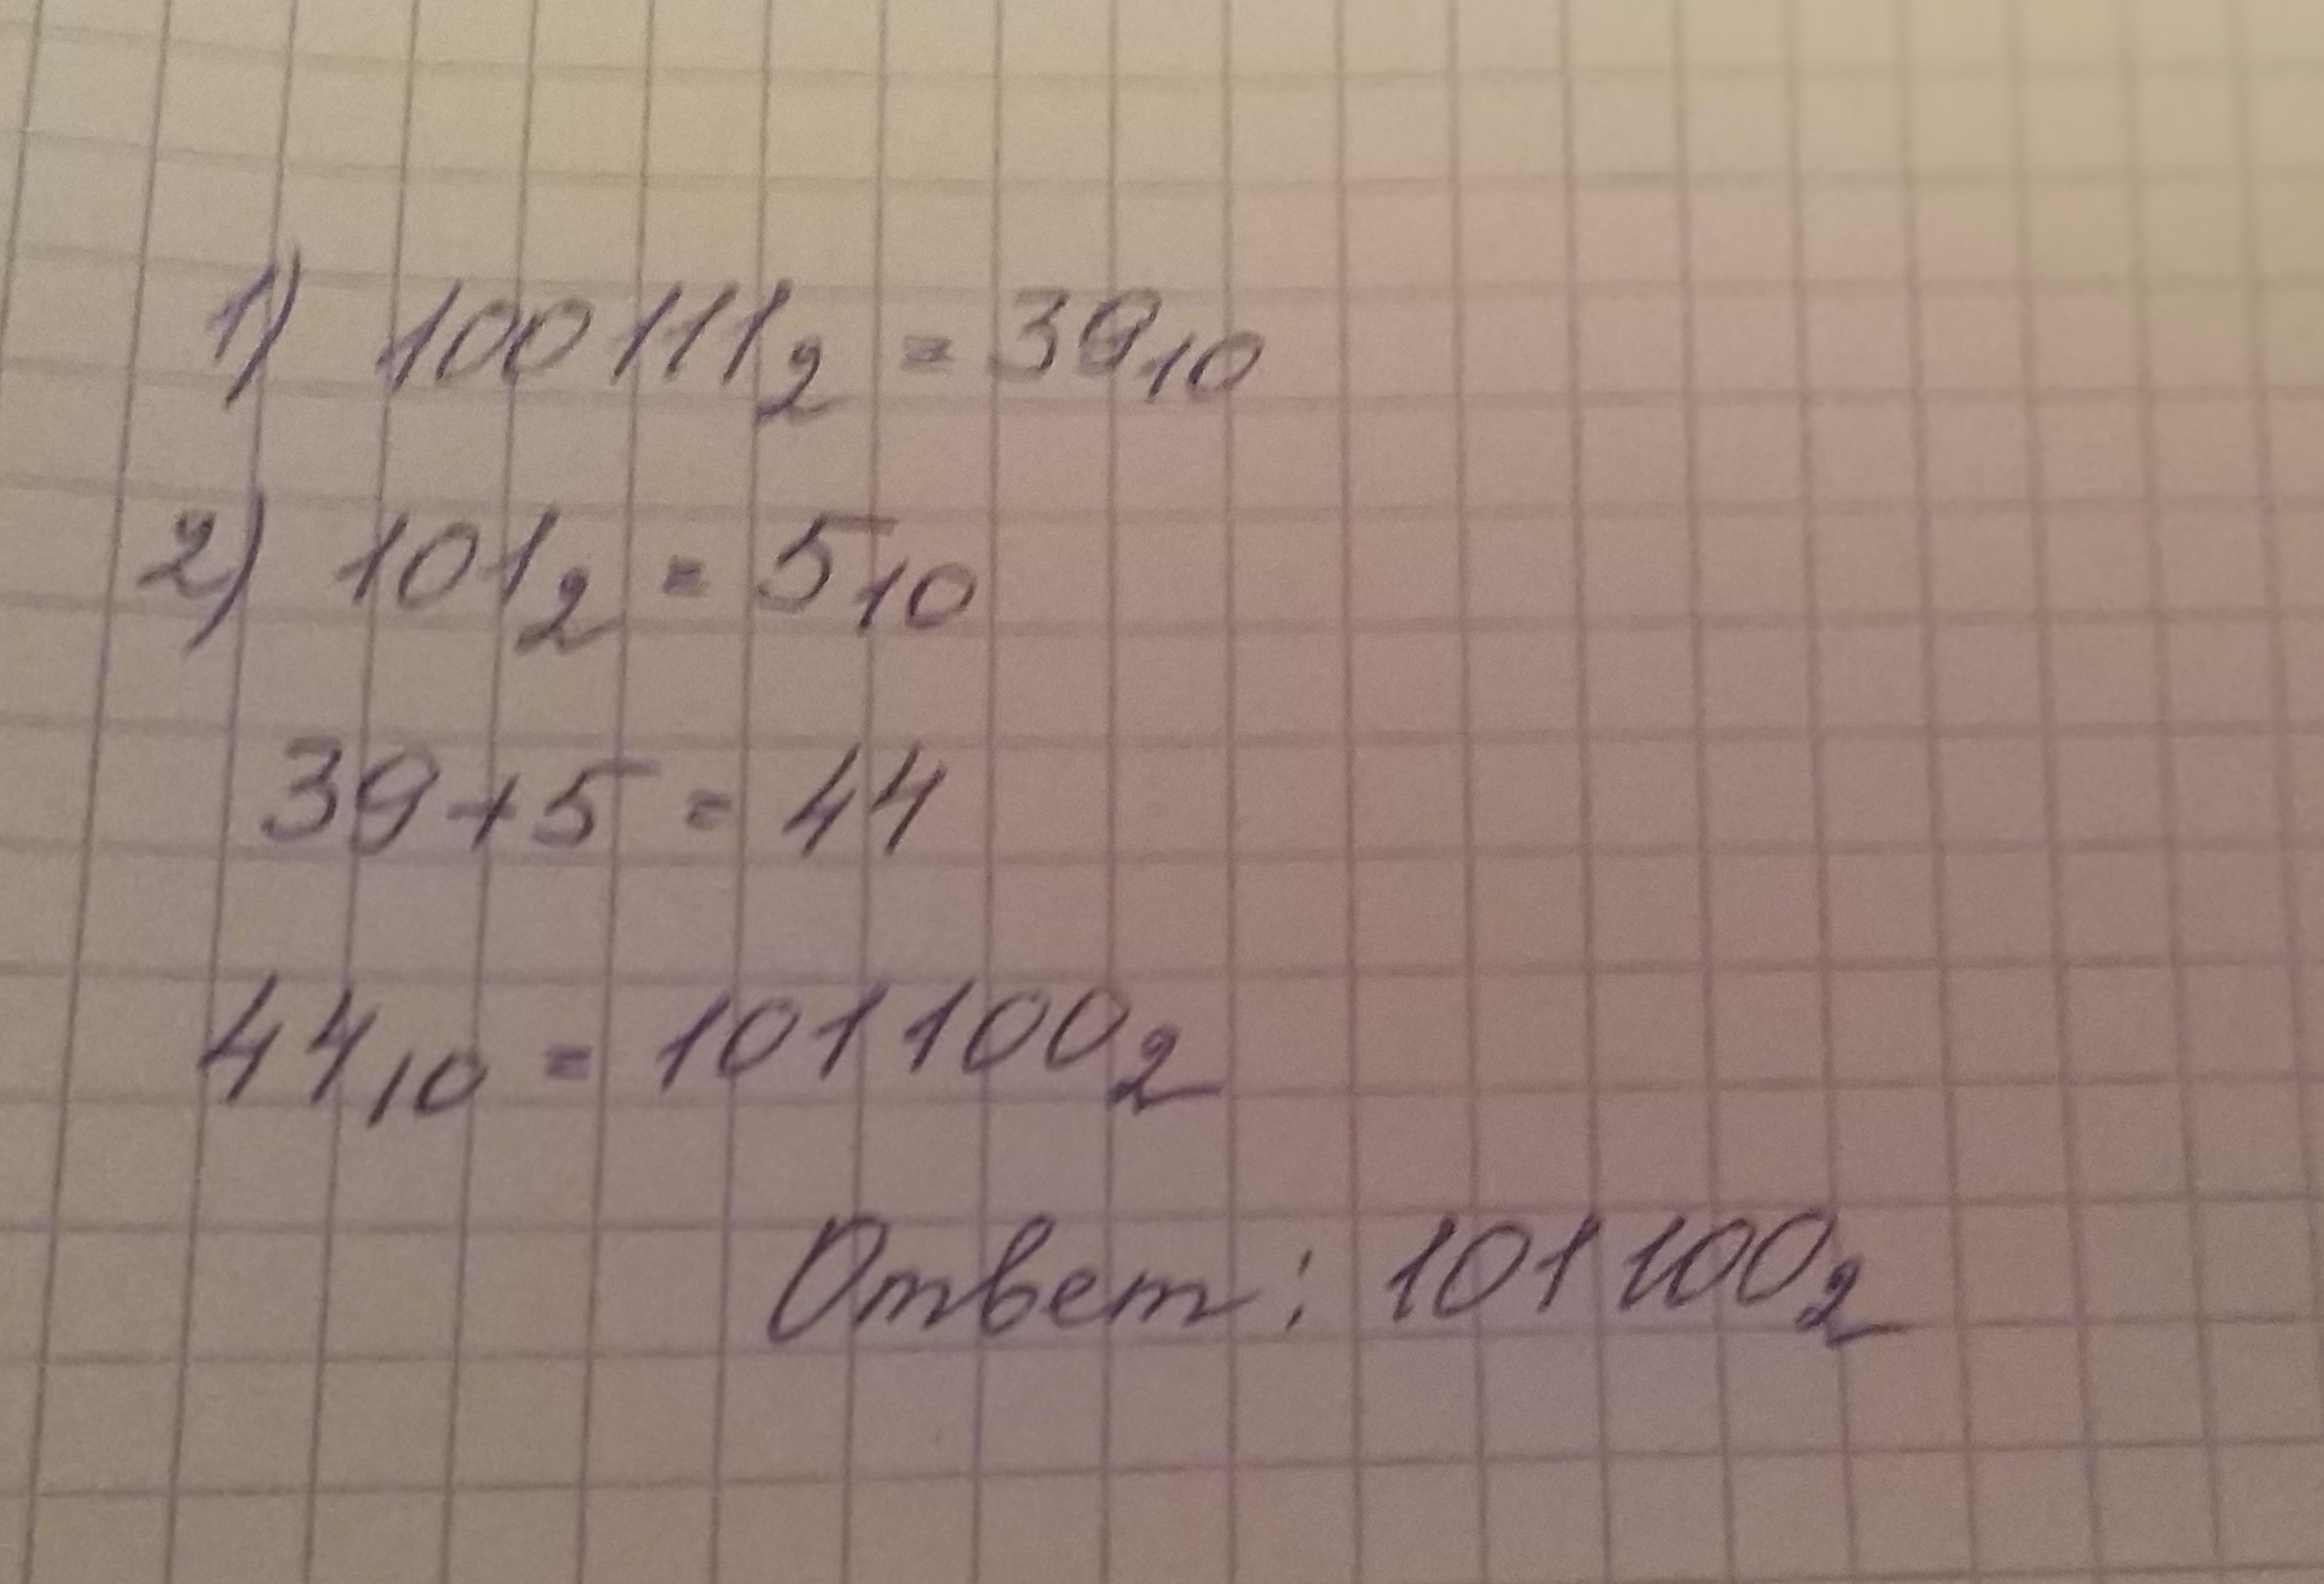 1) 100111₂ = 39₁₀
2) 101₂ = 5₁₀
39 + 5 = 44
44₁₀ = 101100₂
Ответ: 101100₂